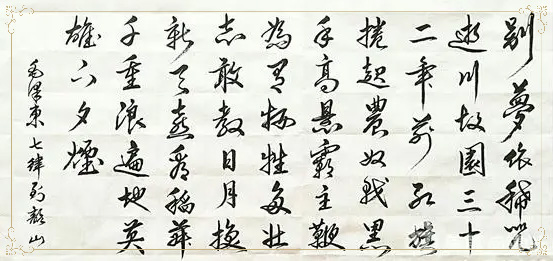 别夢依稀咒
逝川故園三十
二年前红旗
捲起農奴戟黑
手高悬霸主鞭
為有牺牲多壮
志敢教日月换
新天喜看稻菽
千重浪遍地英
雄下夕煙
毛澤東七律到韶山